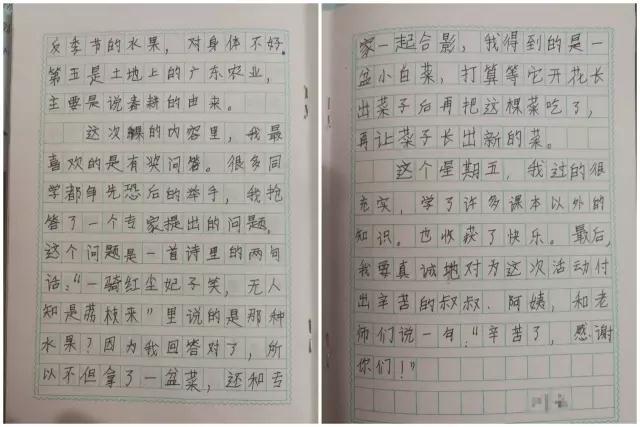 反季节的水果，对身体不好。
第五是土地上的广东农业，
主要是说春耕的由来。
这次课的内容里，我最
喜欢的是有奖问答。很多同
学都争先恐后的举手，我抢
答了一个专家提出的问题。
这个问题是一首诗里的两句
话：“一骑红尘妃子笑，无人
知是荔枝来”里说的是那种
水果？因为我回答对了，所
以不但拿了一盆菜，还和专
家一起合影，我得到的是一
盆小白菜，打算等它开花长
出菜子后再把这棵菜吃了，
再让菜子长出新的菜。
这个星期五，我过的很
充实，学了许多课本以外的
知识。也收获了快乐。最后，
我要真诚地对为这次活动付
出辛苦的叔叔、阿姨，和老
师们说一句：“辛苦了，感谢
你们！”